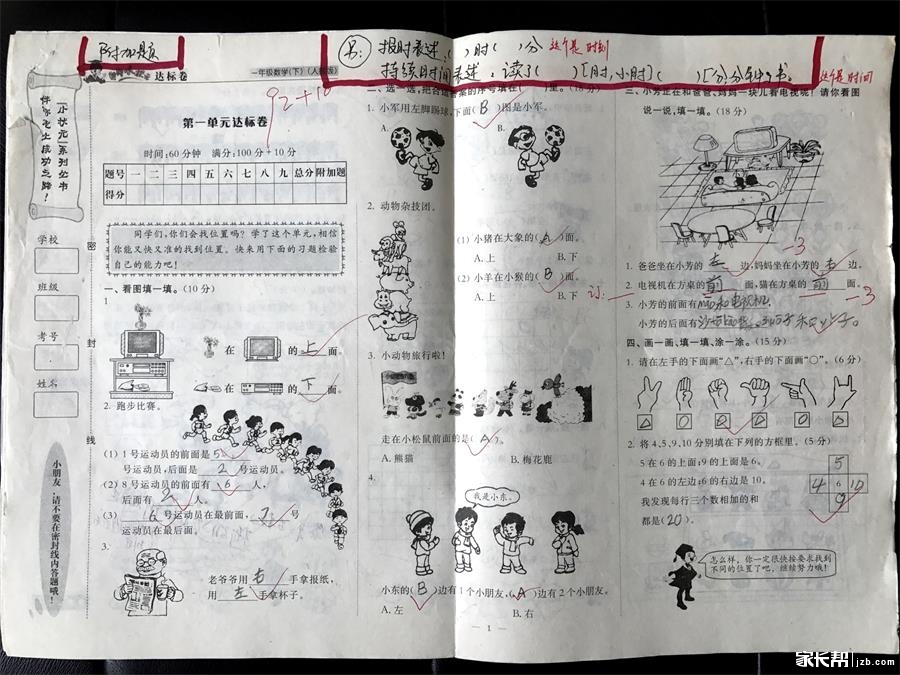 附加题
书：报时表述：( )时( )分 这个是时刻
持续时间表述，读了( )[时,小时]( )[分,分钟]书。 这个是时间
达标卷
一年级数学(下)(人教版)
92+10
《小状元》系列丛书
伴你走上成功之路！
学校
班级
考号
姓名
密
封
线
小朋友，请不要在密封线内答题哦！
第一单元达标卷
时间:60分钟 满分:100分+10分
题号 一 二 三 四 五 六 七 八 九 总分 附加题
得分
同学们,你们会找位置吗? 学了这个单元,相信
你能又快又准的找到位置。快来用下面的习题检验
自己的能力吧!
一、看图填一填。(10分)
1
在 的 上 面。
在 的 下 面。
2. 跑步比赛。
(1) 1号运动员的前面是 5
号运动员,后面是 2 号运动员。
(2) 8号运动员的前面有 6 人,
后面有 2 人。
(3) 6 号运动员在最前面, 7 号
运动员在最后面。
3.
老爷爷用 右 手拿报纸,
用 左 手拿杯子。
二、选一选,把合适答案的序号填在( )里。(18分)
1. 小军用左脚踢球,下面( B )图是小军。
A.
B.
2. 动物杂技团。
(1) 小猪在大象的( A )面。
A. 上 B. 下
(2) 小羊在小猴的( B )面。
A. 上 B. 下
3. 小动物旅行啦!
走在小松鼠前面的是( A )。
A. 熊猫 B. 梅花鹿
4.
我是小东。
小东的( B )边有1个小朋友,( A )边有2个小朋友。
A. 左 B. 右
— 1 —
三、小芳正在和爸爸、妈妈一块儿看电视呢! 请你看图
说一说,填一填。(18分)
-3
1. 爸爸坐在小芳的 左 边,妈妈坐在小芳的 右 边。
2. 电视机在方桌的 前 面,猫在方桌的 前 面。
-3
3. 小芳的前面有 电视机
小芳的后面有
四、画一画、填一填、涂一涂。(15分)
1. 请在左手的下面画“△”,右手的下面画“○”。(6分)
2. 将4,5,9,10分别填在下列的方框里。(5分)
5在6的上面;9的上面是6。
4在6的左边;6的右边是10。
我发现每行三个数相加的和
都是( 20 )。
5
4 6 10
9
怎么样,你一定很快按要求找到
不同的位置了吧,继续努力哦!
家长帮 jzb.com